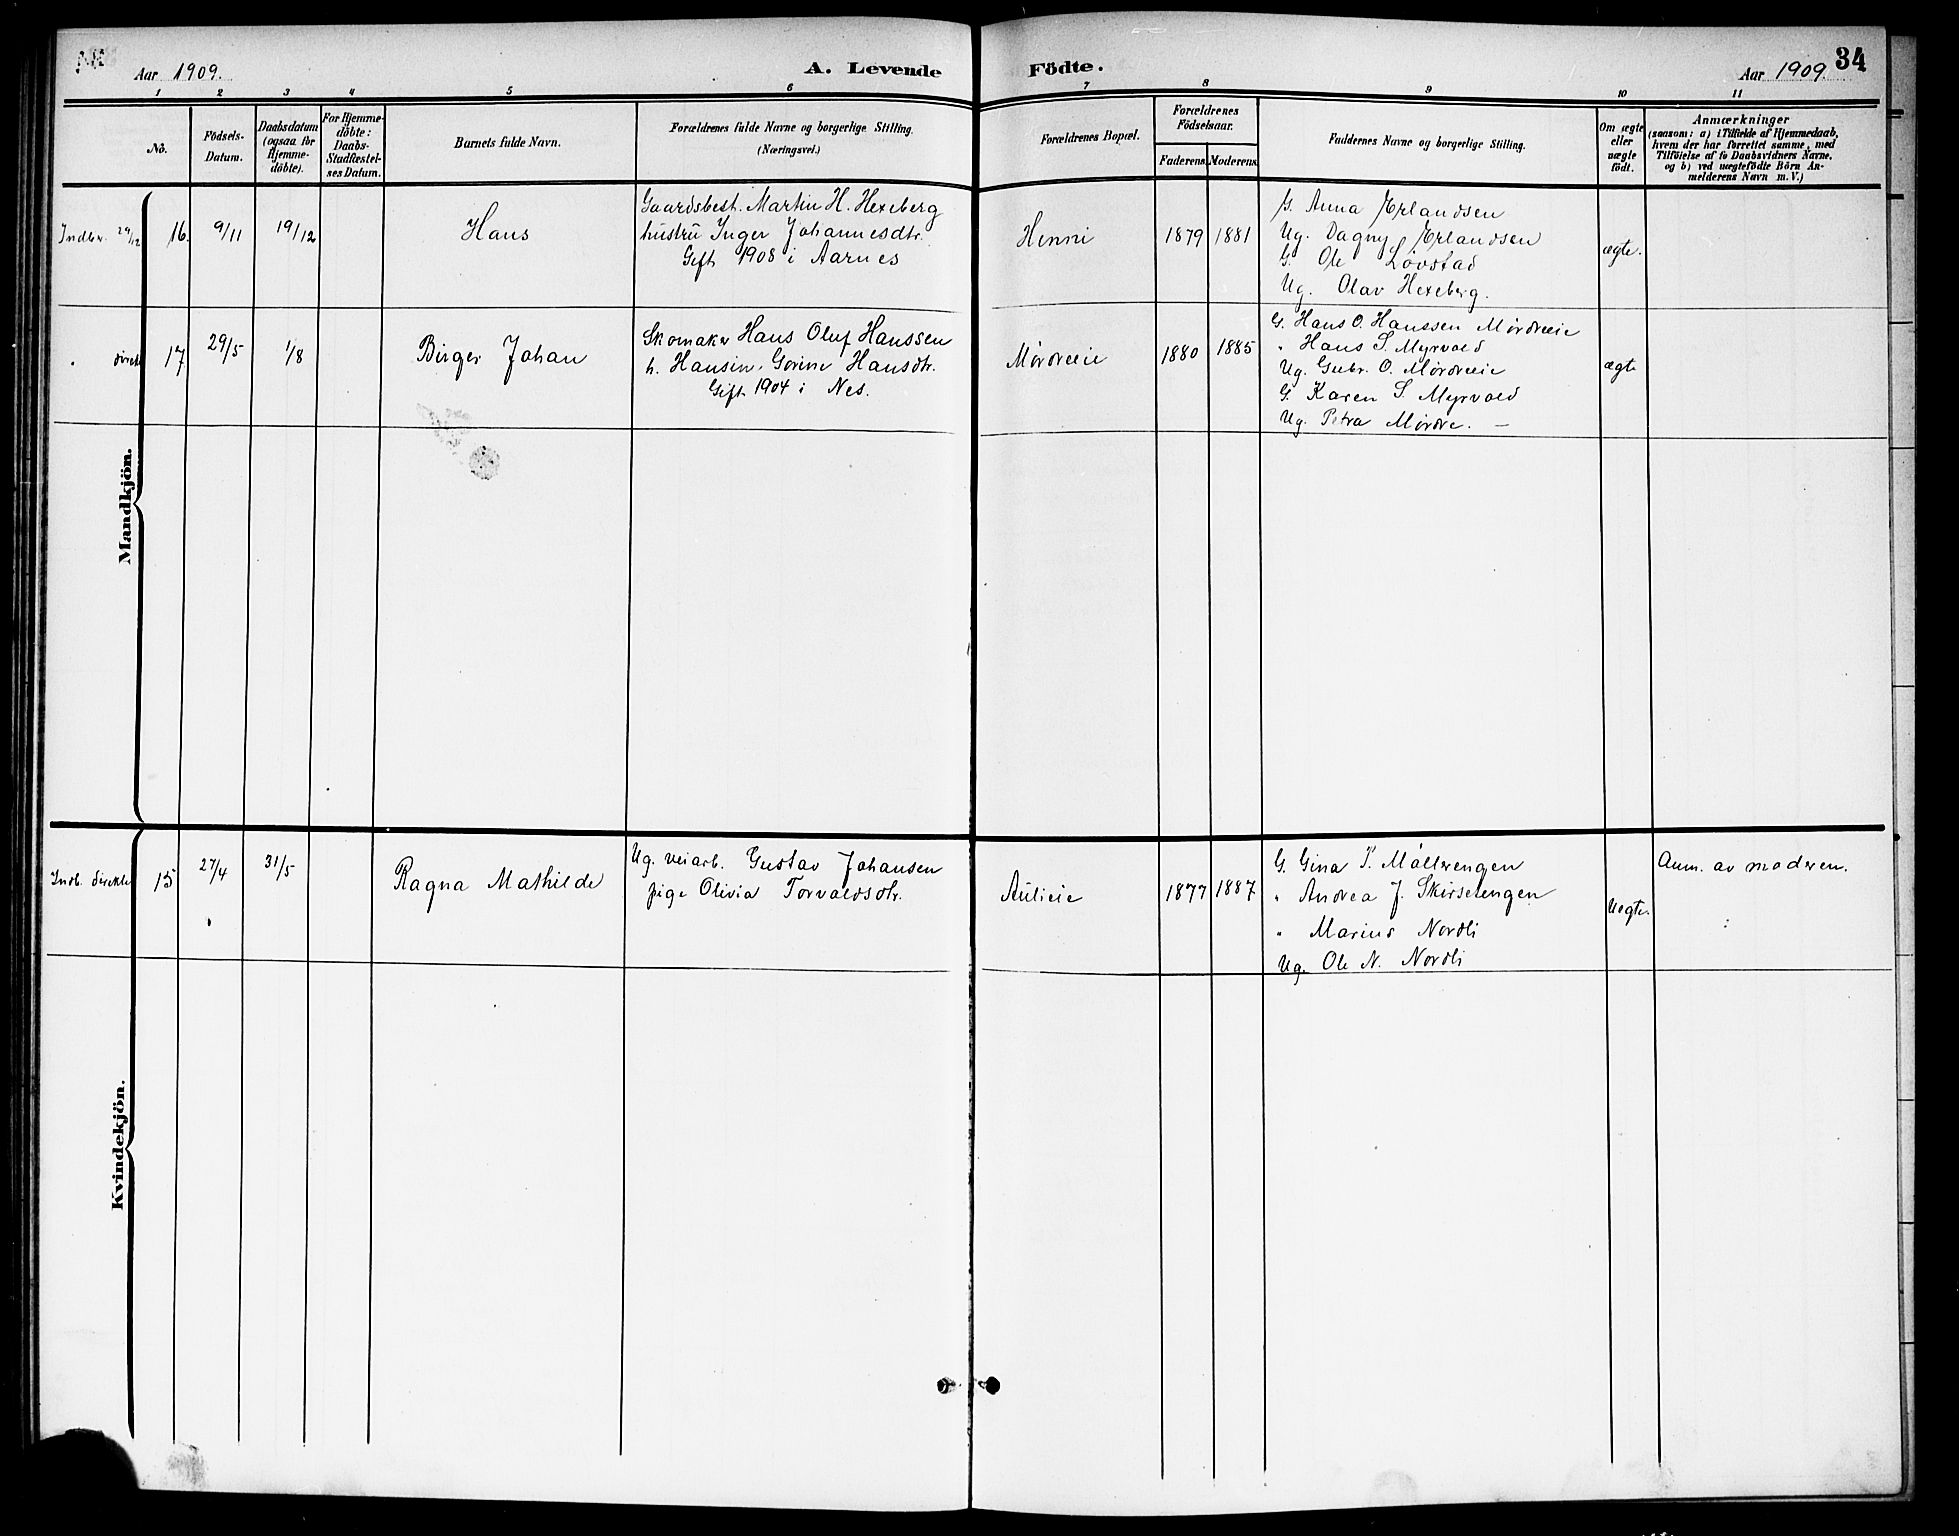 Aar 1909.
A. Levende Födte.
Aar 1909.
34
1 2 3 4 5 6 7 8 9 10 11
No.
Födsels-
Datum.
Daabsdatum
(ogsaa for
Hjemme-
döbte).
For Hjemme-
döbte:
Daabs-
Stadfæstel-
ses Datum.
Barnets fulde Navn.
Forældrenes fulde Navne og borgerlige Stilling.
(Næringsvei.)
Forældrenes Bopæl.
Forældrenes
Födselsaar.
Faderens. Moderens.
Faddernes Navne og borgerlige Stilling.
Om ægte
eller
uægte
födt.
Anmærkninger
(saasom: a) i Tilfælde af Hjemmedaab,
hvem der har forrettet samme, med
Tilföielse af to Daabsvidners Navne,
og b) ved uægtefödte Börn An-
melderens Navn m. V.)
Mandkjön.
Indber. 29/12 16. 9/11 19/12
Hans
Gaardsbest. Martin H. Hexeberg
hustru Inger Johannesdtr.
Gift 1908 i Aarnes
Henni
1879 1881
G. Anna Erlandsen
Ug. Dagny Erlandsen
G. Ole Lövstad
Ug. Olav Hexeberg.
ægte.
" direkte 17 29/5 1/8
Birger Johan
Skomaker Hans Oluf Hanssen
h. Hansine Gorine Hansdtr.
Gift 1904 i Nes.
Mørdreeie
1880 1885
G. Hans O. Hanssen Mørdreeie
" Hans S. Myrvold
Ug. Gubr. O. Mørdreeie
G. Karen S. Myrvold
Ug. Petra Mørdre. —
ægte
Kvindekjön.
Indb. direkte 15 27/4 31/5
Ragna Mathilde
Ug. veiarb. Gustav Johansen
pige Olivia Torvaldsdtr.
Aulieie
1877 1887
G. Gina P. Möllerengen
" Andrea J. Skirselengen
" Marius Nordli
Ug. Ole N. Nordli
Uegte.
Anm. av moderen.